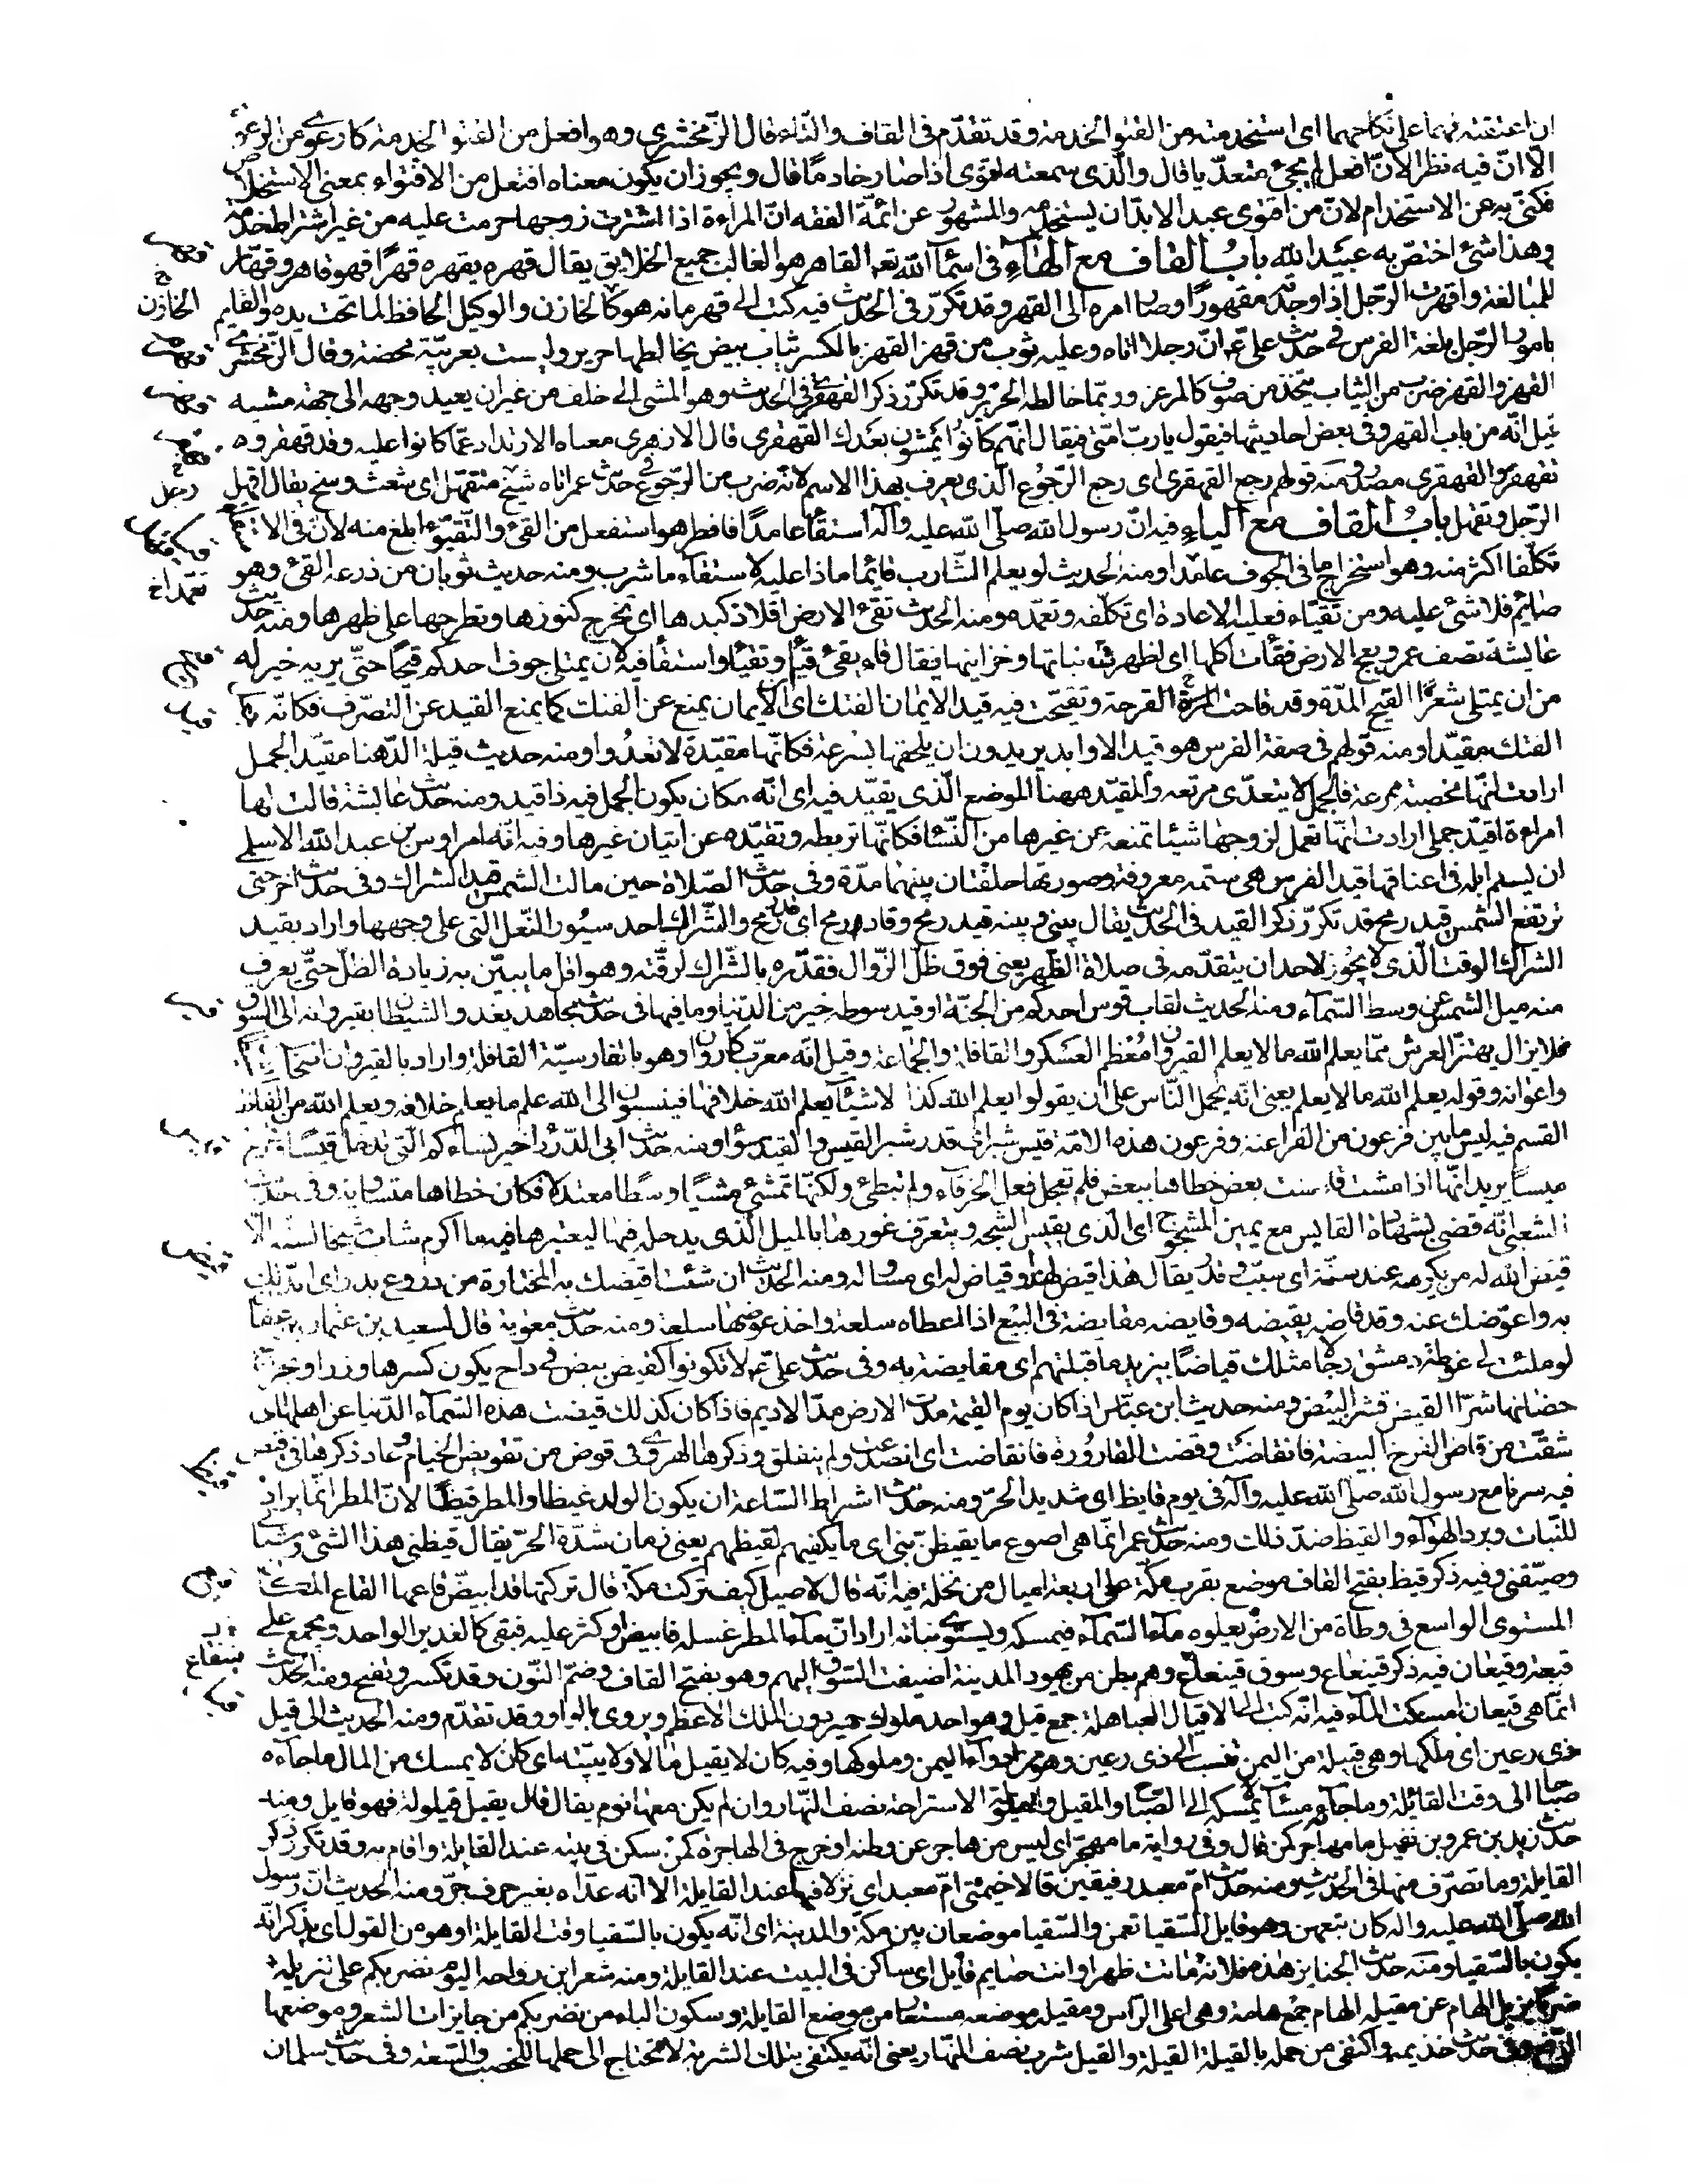 ان اعتقته فهما على نكاحهما اى استخدمته من القتو الخدمة وقد تقدّم فى القاف والتاء قال الزّمخشرى وهو افعل من القتو الخدمة كارعوى من الرعو
الّا انّ فيه نظرا لانّ افعل لم يجئ متعدّيا قال والّذى سمعته اقتوى اذا صار خادمًا قال ويجوز ان يكون معناه افتعل من الاقتواء بمعنى الاستخلاص
فكنّى به عن الاستخدام لانّ من اقتوى عبدا لابدّ ان يستخدمه والمشهور عن ائمّة الفقه انّ المراءة اذا اشترت زوجها حرمت عليه من غير اشتراط خدمة
وهذا شئ اختصّ به عبيد الله باب القاف مع الهاء فى اسماء الله تعا القاهر هو الغالب جميع الخلايق يقال قهره يقهره قهرًا فهو قاهر وقهّار
للمبالغة واقهرت الرّجل اذا وجدته مقهورًا او صار امره الى القهر وقد تكرّر فى الحديث فيه كتب الى قهرمانه هو كالخازن والوكيل الحافظ لما تحت يده والقايم
بامور الرّجل بلغة الفرس فى حديث علىّ ع انّ رجلا اتاه وعليه ثوب من قهز القهز بالكسر ثياب بيض يخالطها حرير وليست بعربيّة محضة وقال الزّمخشرى
القهز والقهز ضرب من الثياب يتّخذ من صوف كالمرعزى وربّما خالطه الحرير وقد تكرّر ذكر القهقرى فى الحديث وهو المشى الى خلف من غير ان يعيد وجهه الى جهة مشيه
قيل انّه من باب القهر وفى بعض احاديثها فيقول ياربّ امّتى فيقال انّهم كانوا يمشون بعدك القهقرى قال الازهرى معناه الارتداد عمّا كانوا عليه وقد قهقر وه
تقهقر والقهقرى مصدر ومنه قولهم رجع القهقرى اى رجع الرّجوع الّذى يعرف بهذا الاسم لانّه ضرب من الرّجوع فى حديث عمر اتاه شيخ متقهّل اى شعث وسخ يقال اقهل
الرّجل وتقهّل باب القاف مع الياء فيه انّ رسول الله صلّى الله عليه وآله استقاء عامدًا فافطر هو استفعل من القئ والتّقيّؤ ابلغ منه لانّ فى الاستقاءة
تكلّفا اكثر منه وهو استخراج ما فى الجوف عامدا ومنه الحديث لو يعلم الشّارب قائما ماذا عليه لاستقاء ما شرب ومنه حديث ثوبان من ذرعه القئ وهو
صائم فلا شئ عليه ومن تقيّاء فعليه الاعادة اى تكلّفه وتعمّده ومنه الحديث تقئ الارض افلاذ كبدها اى تخرج كنوزها وتطرحها على ظهرها ومنه حديث
عايشة تصف عمر وبعج الارض فقاءت اكلها اى اظهرت نباتها وخزاينها يقال قاء يقئ قيئا وتقيّاء واستقاء فيه لان يمتلى جوف احدكم قيحًا حتّى يريه خير له
من ان يمتلى شعرًا القيح المدّة وقد قاحت القرحة وتقيّحت فيه قيد الايمان الفتك اى الايمان يمنع عن الفتك كما يمنع القيد عن التصرّف فكانّه جعل
الفتك مقيّدا ومنه قولهم فى صفة الفرس هو قيد الاوابد يريدون ان يلحقها بسرعة فكانّها مقيّدة لا تعدوا ومنه حديث قيلة الدّهنا مقيّد الجمل
ارادت انّها مخصبة ممرعة فالجمل لا يتعدّى مرتعه والمقيّد ههنا الموضع الّذى يقيّد فيه اى انّه مكان يكون الجمل فيه ذا قيد ومنه حديث عايشة قالت لها
امراءة اقيّد جملى ارادت انّها تعمل لزوجها شيئا تمنعه عن غيرها من النّساء فكانّها تربطه وتقيّده عن اتيان غيرها وفيه انّه امر اوس بن عبد الله الاسلمى
ان يسم ابله فى اعناقها قيد الفرس هى سمة معروفة وصورتها حلقتان بينهما مدّة وفى حديث الصّلاة حين مالت الشمس قيد الشراك وفى حديث آخر حتّى
ترتفع الشمس قيد رمح قد تكرّر ذكر القيد فى الحديث يقال بينى وبينه قيد رمح وقاد رمح اى قدر رمح والشّراك احد سيور النّعل الّتى على وجهها واراد بقيد
الشراك الوقت الّذى لا يجوز لاحد ان يتقدّمه فى صلاة الظهر يعنى فوق ظلّ الزّوال فقدّره بالشّراك لرقّته وهو اقلّ ما يبيّن به زيادة الظلّ حتّى يعرف
منه ميل الشمس عن وسط السّماء ومنه الحديث لقاب قوس احدكم من الجنّة او قيد سوطه خير من الدّنيا وما فيها فى حديث مجاهد يغدو الشيطان بقيروانه الى السّوق
فلا يزال يهتزّ العرش ممّا يعلم الله ما لا يعلم القيروان معظم العسكر والقافلة والجماعة وقيل انّه معرّب كاروان وهو بالفارسيّة القافلة واراد بالقيروان اصحاب الشيطان
واعوانه وقوله يعلم الله ما لا يعلم يعنى انّه يحمل النّاس على ان يقولوا يعلم الله كذا لاشياء يعلم الله خلافها فينسبون الى الله علم ما يعلم خلافه ويعلم الله من الفاظ
القسم فيه ليس ما بين فرعون من الفراعنة وفرعون هذه الامّة قيس شبر اى قدر شبر القيس والقيد سواء ومنه حديث ابى الدّرداء خير نساءكم الّتى تدخل قيسًا وتخرج
ميسًا يريد انّها اذا مشت قاست بعض خطاها ببعض فلم تعجل فعل الخرقاء ولم تبطئ ولكنّها تمشى مشيًا وسطًا معتدلا فكان خطاها متساوية وفى حديث
الشعبى انّه قضى بشهادة القايس مع يمين المشجوج اى الّذى يقيس الشجّة ويتعرّف غورها بالميل الّذى يدخله فيها ليعتبرها فيه ما اكرم شابّ شيخا لسنّه الّا
قيّض الله له من يكرمه عند سنّه اى سبّب وقدّر يقال هذا قيض لهذا وقياض له اى مساو له ومنه الحديث ان شئت اقيضك به المختارة من دروع بدر اى ابدّلك
به واعوّضك عنه وقد قاضه يقيضه وقايضه مقايضة فى البيع اذا اعطاه سلعة واخذ عوضها سلعة ومنه حديث معوية قال لسعيد بن عثمان بن عفّان
لو ملئت لى غوطة دمشق رجالا مثلك قياضًا بيزيد ما قبلتهم اى مقايضة به وفى حديث علىّ ع لا تكونوا كقيض بيض فى داح يكون كسرها وزرا ويخرج
حضانها شرّا القيض قشر البيض ومنه حديث ابن عبّاس اذا كان يوم القيمة مدّت الارض مدّ الاديم فاذا كان كذلك قيضت هذه السّماء الدّنيا عن اهلها اى
شقّت من قاض الفرخ البيضة فانقاضت وقضت القارورة فانقاضت اى انصدعت ولم ينفلق وذكرها الهروى فى قوض من تقويض الخيام وعاد ذكرها فى قيض
فيه سرنا مع رسول الله صلّى الله عليه وآله فى يوم قايظ اى شديد الحرّ ومنه حديث اشراط السّاعة ان يكون الولد غيظا والمطر قيظًا لانّ المطر انّما يراد
للنّبات وبرد الهواء والقيظ ضدّ ذلك ومنه حديث عمر انّما هى اصوع ما يقيظن بنىّ اى ما يكفيهم لقيظهم يعنى زمان شدّة الحرّ يقال قيّظنى هذا الشئ وشتّانى
وصيّفنى وفيه ذكر قيظ بفتح القاف موضع بقرب مكّة على اربعة اميال من نخلة فيه انّه قال لاصيل كيف تركت مكّة قال تركتها قد ابيضّ قاعها القاع المكان
المستوى الواسع فى وطاة من الارض يعلوه ماء السّماء فيمسكه ويستوى نباته اراد انّ ماء المطر غسله فابيضّ او كثر عليه فبقى كالغدير الواحد ويجمع على
قيعة وقيعان فيه ذكر قينقاع وسوق قينقاع وهم بطن من يهود المدينة اضيفت السّوق اليهم وهو بفتح القاف وضمّ النّون وقد تكسر وتفتح ومنه الحديث
انّما هى قيعان امسكت الماء فيه انّه كتب الى الاقيال العباهلة جمع قيل وهو احد ملوك حمير دون الملك الاعظم ويروى بالواو وقد تقدّم ومنه الحديث الى قيل
ذى رعين اى ملكها وهى قبيلة من اليمن تنسب الى ذى رعين وهو من اذواء اليمن وملوكها وفيه كان لا يقيل مالا ولا يبيّته اى كان لا يمسك من المال ما جاءه
صباحا الى وقت القائلة وما جاءه مساء لا يمسكه الى الصّباح والمقيل والقيلولة الاستراحة نصف النّهار وان لم يكن معها نوم يقال قال يقيل قيلولة فهو قايل ومنه
حديث زيد بن عمرو بن نفيل ما مهاجر كمن قال وفى رواية ما مهجّر اى ليس من هاجر عن وطنه او خرج فى الهاجرة كمن سكن فى بيته عند القايلة واقام به وقد تكرّر ذكر
القايلة وما تصرّف منها فى الحديث ومنه حديث امّ معبد رفيقين قالا خيمتى امّ معبد اى نزلا فيها عند القايلة الّا انّه عدّاه بغير حرف جرّ ومنه الحديث انّ رسول
الله صلّى الله عليه وآله كان بتعهن وهو قايل السّقيا تعهن والسّقيا موضعان بين مكّة والمدينة اى انّه يكون بالسّقيا وقت القايلة او هو من القول اى يذكر انّه
يكون بالسّقيا ومنه حديث الجنايز هذه فلانة ماتت ظهرا وانت صايم قايل اى ساكن فى البيت عند القايلة ومنه شعر ابن رواحة اليوم نضربكم على تنزيله
ضربًا يزيل الهام عن مقيله الهام جمع هامة وهى اعلى الرّاس ومقيله موضعه مستعار من موضع القايلة وسكون الباء من نضربكم من جايزات الشعر وموضعها
الرّفع وفى حديث خزيمة واكتفى من حمله بالقيلة القيلة والقيل شرب نصف النّهار يعنى انّه يكتفى بتلك الشربة لا تحتاج الى حملها للخصب والسّعة وفى حديث سلمان